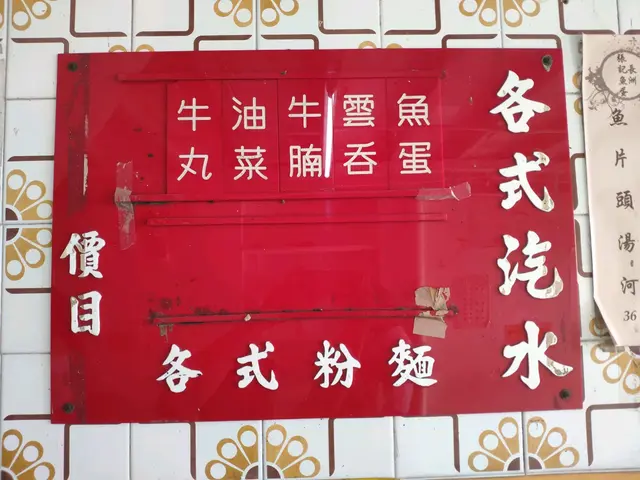 各式汽水
魚蛋
雲吞
牛腩
油菜
牛丸
各式粉麵
價目
長洲
張記魚蛋
魚片頭湯:河
36